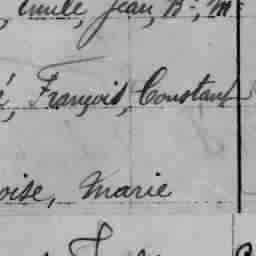 , Emile, Jean, B.-, M
é, François, Constant
oise, Marie